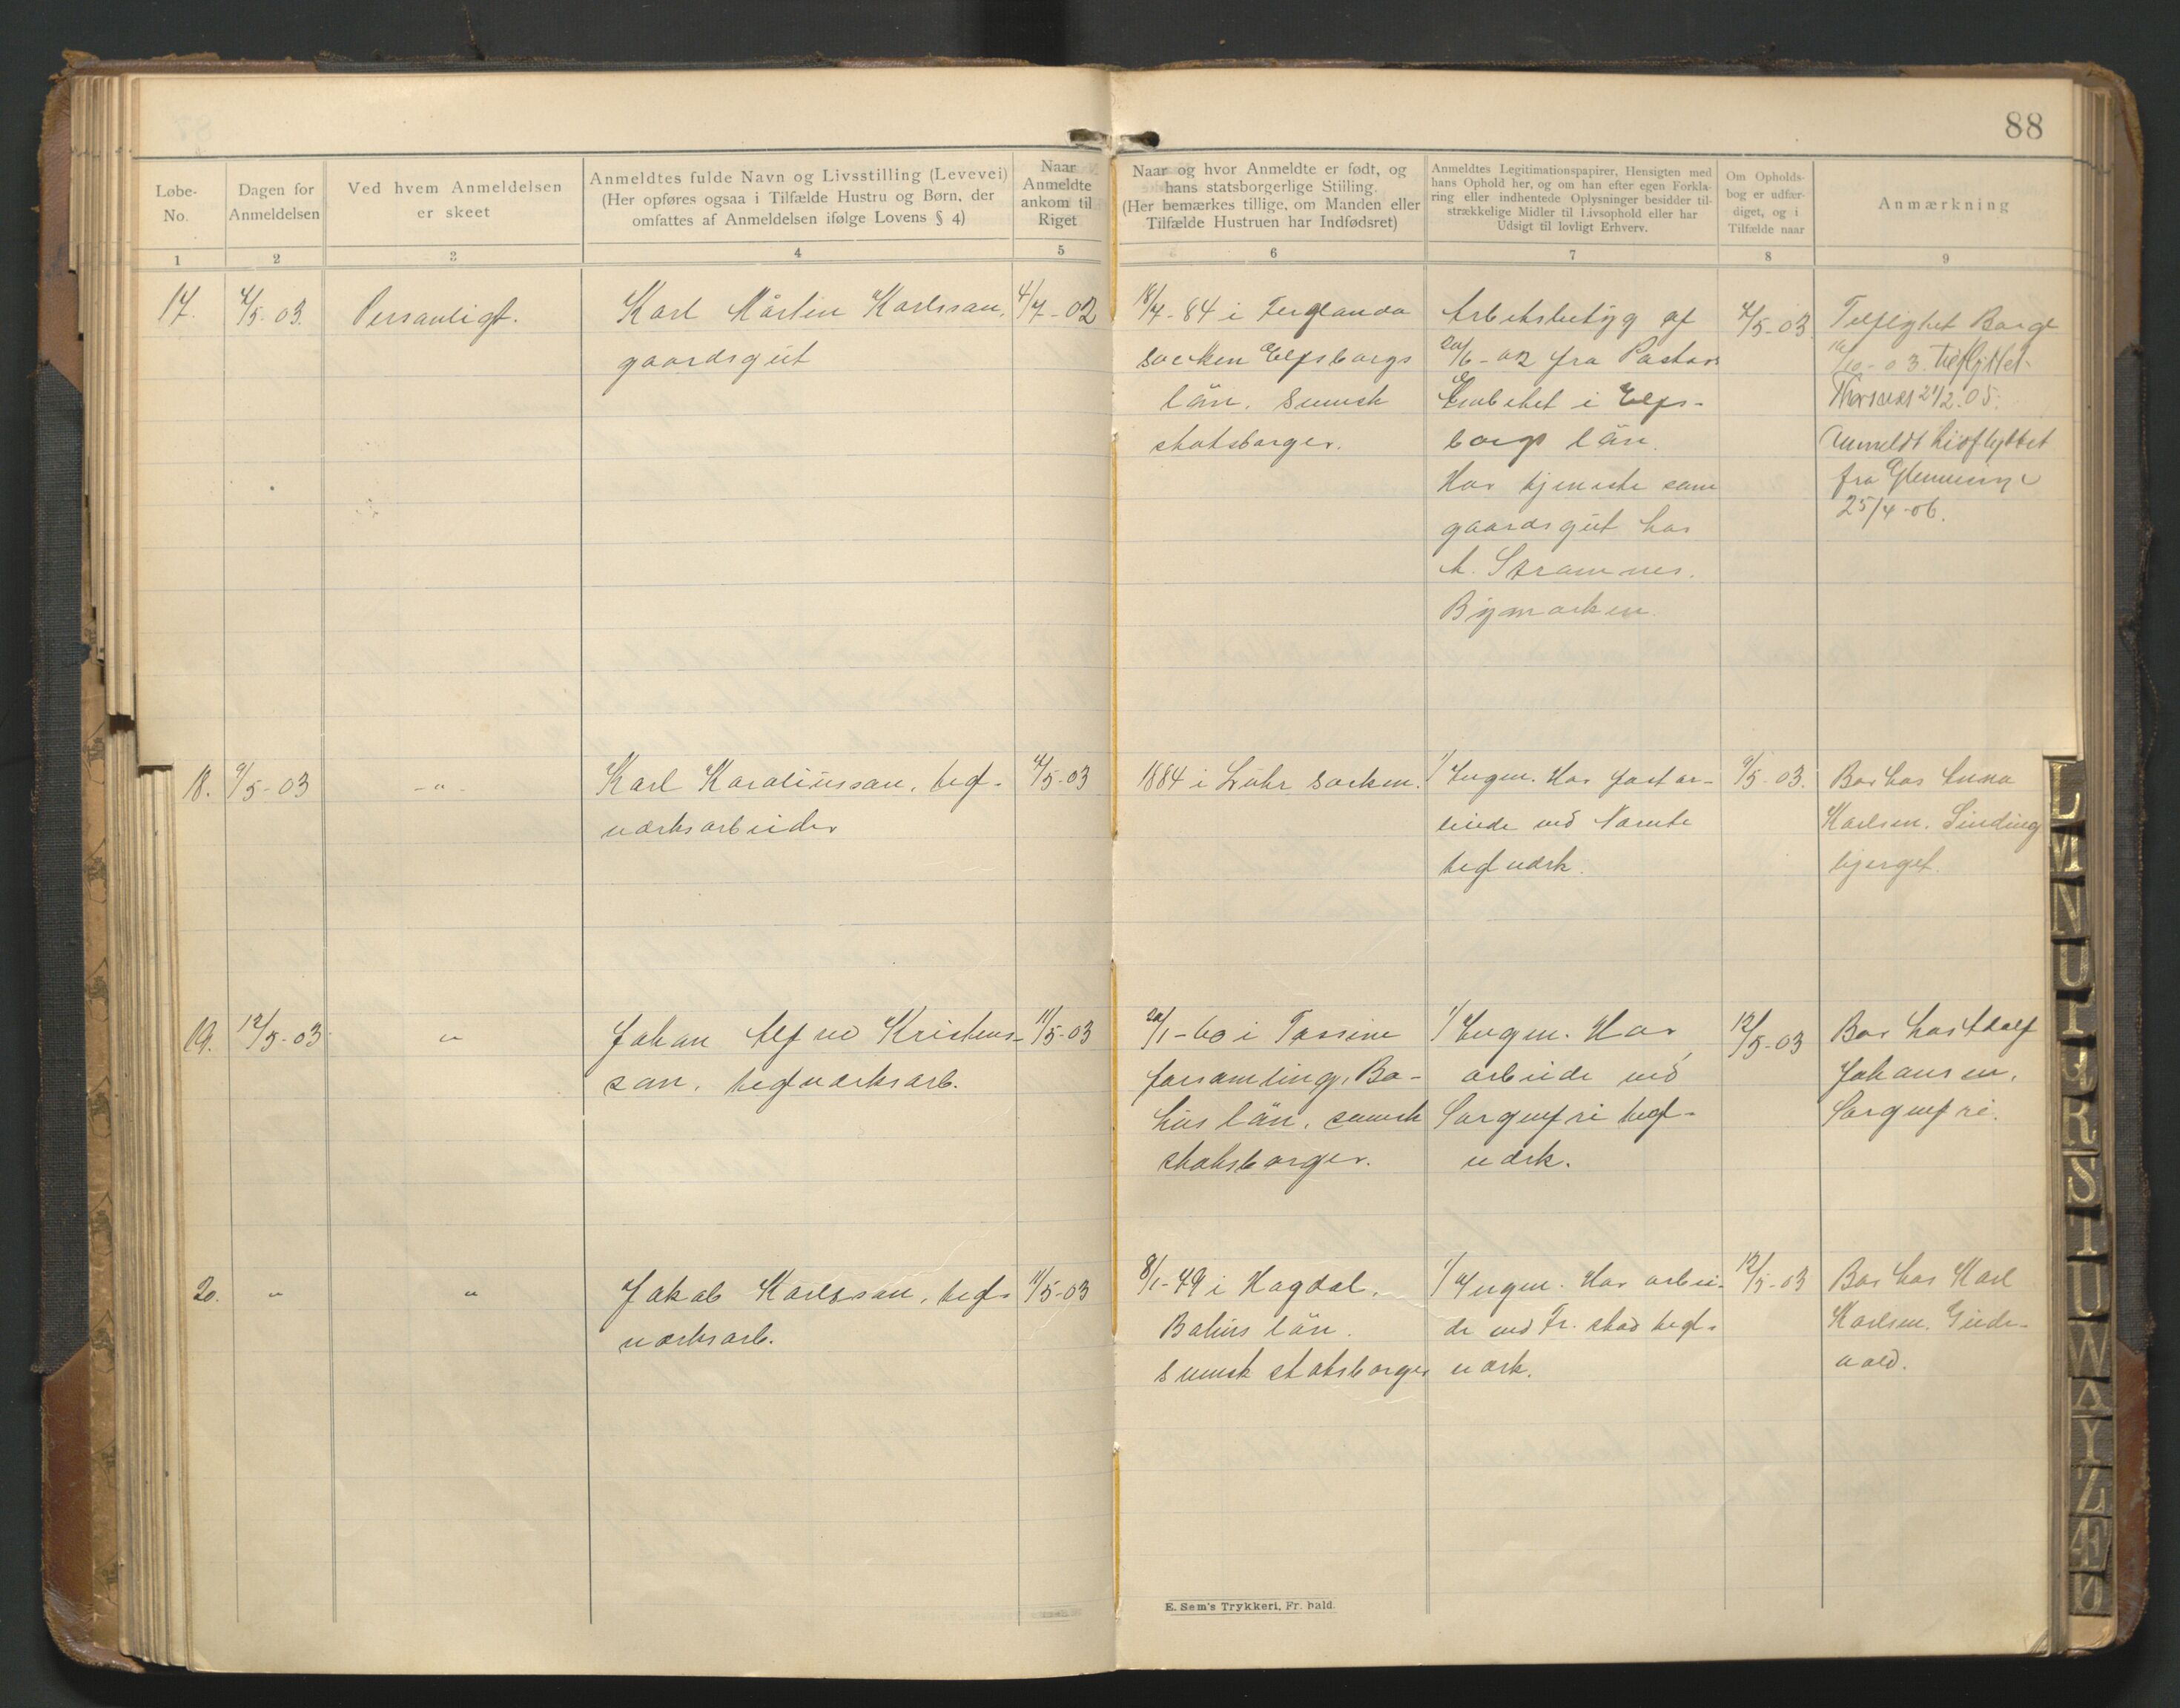 88
Løbe-
No.
Dagen for
Anmeldelsen
Ved hvem Anmeldelsen
er skeet
Anmeldtes fulde Navn og Livsstilling (Levevei)
(Her opføres ogsaa i Tilfælde Hustru og Børn, der
omfattes af Anmeldelsen ifølge Lovens § 4)
Naar
Anmeldte
ankom til
Riget
Naar og hvor Anmeldte er født, og
hans statsborgerlige Stilling.
(Her bemærkes tillige, om Manden eller
Tilfælde Hustruen har Indfødsret)
Anmeldtes Legitimationspapirer, Hensigten med
hans Ophold her, og om han efter egen Forkla-
ring eller indhentede Oplysninger besidder til-
strækkelige Midler til Livsophold eller har
Udsigt til lovligt Erhverv.
Om Opholds-
bog er udfær-
diget, og i
Tilfælde naar
Anmærkning
1
2
3
4
5
6
7
8
9
17.
7/5-03.
Personligt.
Karl Mårten Karlsson,
gaardsgut
4/7-02
18/7-84 i Ferglanda
socken Elfsborgs
län. Svensk
statsborger.
Arbetsbetyg af
20/6-02 fra Pastors
Embetet i Elfs-
borgs län.
Har tjeneste som
gaardsgut hos
A. Strømnes.
Bymarken.
7/5-03.
Tilflyttet Borge
16/10-03. tilflyttet
21/2.05.
Anmeldt hidflyttet
fra Glemminge
25/4-06.
18.
9/5-03
-"-
Karl Karolinsson, tegl-
verksarbeider
7/5-03
1884 i Luhr socken.
1/ Ingen. Har fast ar-
beide ved Narnte
teglverk.
9/5-03.
Bor hos Anna
Karlsen. Sinding
bjerget.
19.
12/5-03
"
Johan Alfred Kristens-
son, teglverksarb.
11/5-03
20/1-60 i Tossine
forsamling, Bo-
hus län, svensk
statsborger.
1/ Ingen. Har
arbeide ved
Sorgenfri tegl-
verk.
12/5-03
Bor hos Adolf
Johansen,
Sorgenfri.
20.
"
"
Jakob Karlsson, tegl-
verksarb.
11/5-03
8/1-49 i Hogdal,
Bohus län.
Svensk statsborger
1/ Ingen. Har arbei-
de ved Fr.stad tegl-
verk.
12/5-03
Bor hos Karl
Karlsen. Gude-
vold.
E. Sem's Trykkeri, Fr. hald.
L
M
N
O
P
Q
R
S
T
U
W
A
Y
Z
Æ
Ø